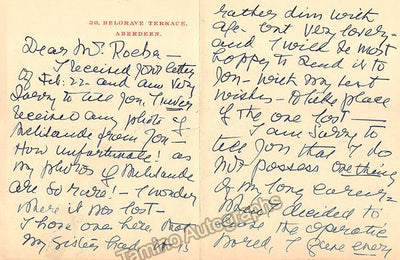 26, BELGRAVE TERRACE,
ABERDEEN.
Dear Mr. Roeba –
I received your letter
of Feb: 22 and am very
sorry to tell you, I never
received any photo of
Mélisande from you –
How unfortunate! as
my photos of Mélisande
are so rare! – I wonder
where it was lost –
I have one here, that
my sister had, it is
rather dim with
age – but very lovely –
and I will be most
happy to send it to
you – with my best
wishes – to take place
of the one lost –
I am sorry to
tell you that I do
not possess one thing
of my long career –
When I decided to
leave the operatic
world, I gave every
Tamino Autographs